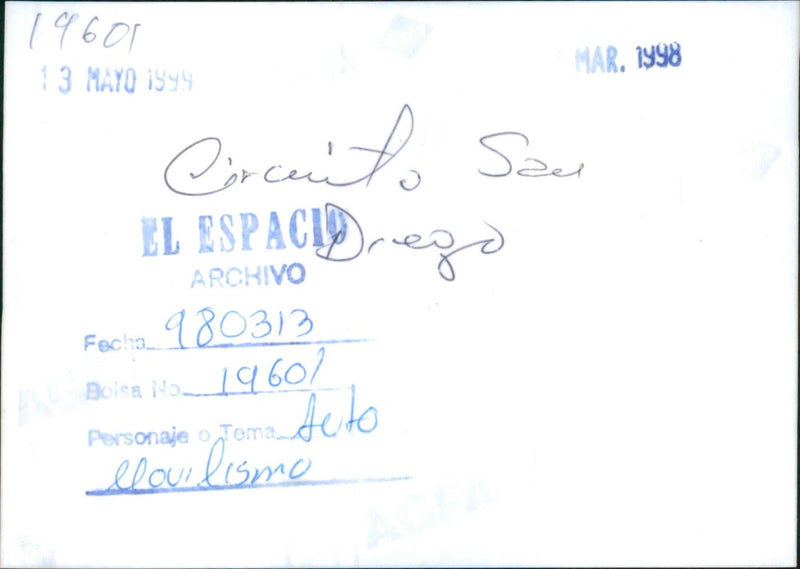 19601
13 MAYO 1999
MAR. 1998
Circuito San
Diego
EL ESPACIO
ARCHIVO
Fecha 980313
Bolsa No. 19601
Personaje o Tema Auto
Movilismo
AGFA
AGFA